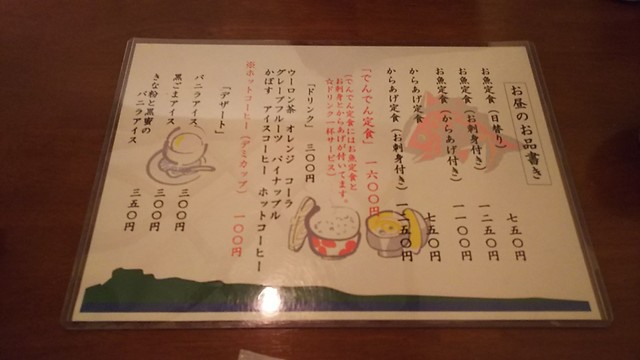 お昼のお品書き
お魚定食（日替り） 七五〇円
お魚定食（お刺身付き） 一二五〇円
お魚定食（からあげ付き） 一一〇〇円
からあげ定食 七五〇円
からあげ定食（お刺身付き） 一二五〇円
「でんでん定食」 一六〇〇円
（でんでん定食にはお魚定食と
お刺身とからあげが付いてます。
☆ドリンク一杯サービス）
「ドリンク」 三〇〇円
ウーロン茶 オレンジ コーラ
グレープフルーツ パイナップル
かぼす アイスコーヒー ホットコーヒー
※ホットコーヒー（デミカップ） 一〇〇円
「デザート」
バニラアイス 三〇〇円
黒ごまアイス 三〇〇円
きな粉と黒蜜の
バニラアイス 三五〇円